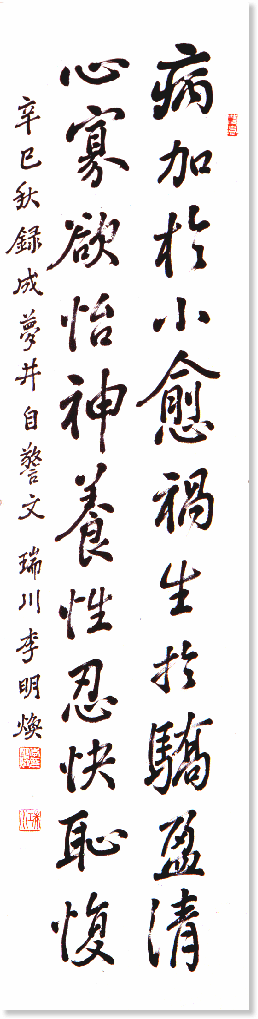 病加於小愈禍生於驕盈清
心寡欲怡神養性忍快恥愎
辛巳秋錄成夢井自警文 瑞川李明煥